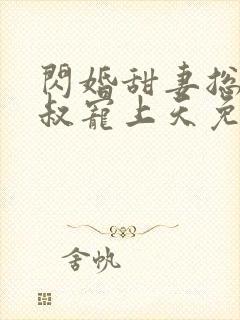 閃婚甜妻摠
叔寵上天免
舍帆